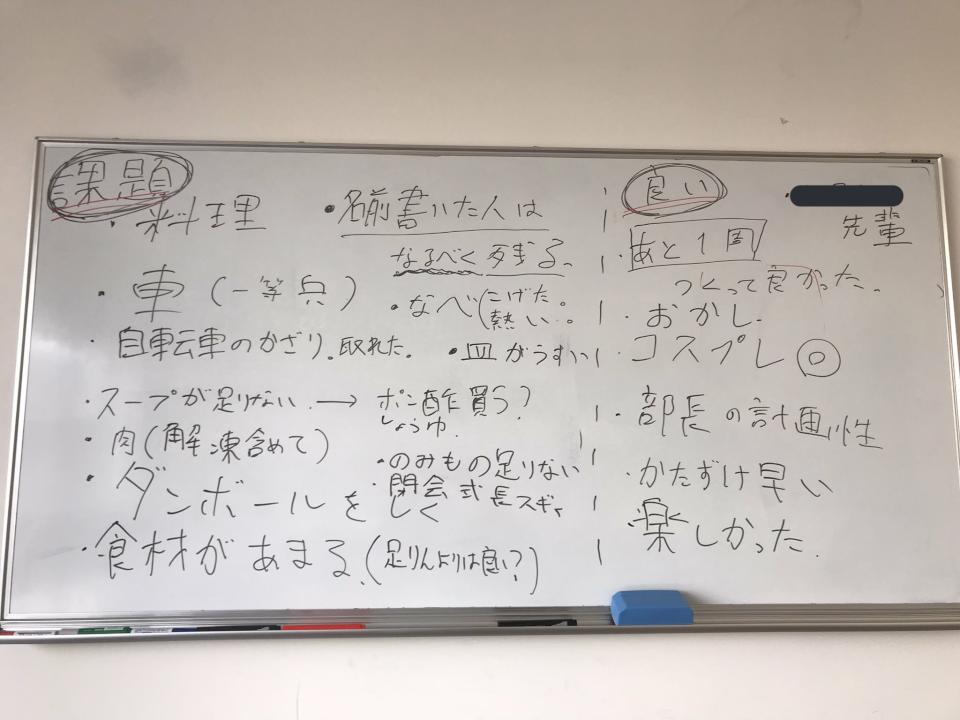 課題
・料理
・車（一等兵）
・自転車のかざり。取れた。
・スープが足りない → ポン酢買う？
しょうゆ
・肉（解凍含めて）
・ダンボールをしく
・食材があまる。（足りんよりは良い？）
・名前書いた人は
なるべく残る。
・なべ（こげた。
熱い。
・皿がうすい
・のみもの足りない
・閉会式長スギィ
良い
・あと1周
つくって良かった。
・おかし
・コスプレ◎
・部長の計画性
・かたずけ早い
・楽しかった.
先輩